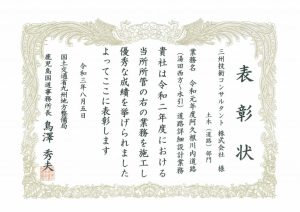 表彰状
三州技術コンサルタント 株式会社 様
土木(道路)部門
業務名 令和元年度阿久根川内道路
(湯田西方〜水引)道路詳細設計業務
貴社は令和二年度における
当所所管の右の業務を施工し
優秀な成績を挙げられました
よってここに表彰します
令和三年八月五日
国土交通省九州地方整備局
鹿児島国道事務所長 鳥澤 秀夫